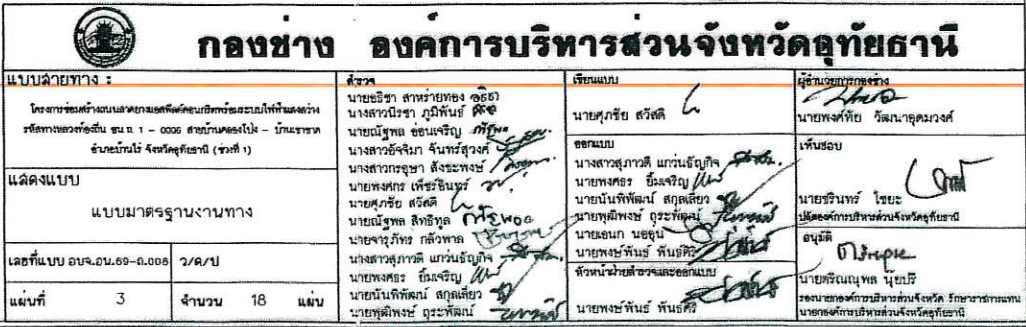 กองช่าง องค์การบริหารส่วนจังหวัดอุทัยธานี
แบบสายทาง :
โครงการซ่อมสร้างถนนลาดยางแอสฟัลต์คอนกรีตพร้อมระบบไฟฟ้าแสงสว่าง
รหัสทางหลวงท้องถิ่น อน.ถ. 1 - 0006 สายบ้านคลองโป่ง - บ้านเขาราด
อำเภอบ้านไร่ จังหวัดอุทัยธานี (ช่วงที่ 1)
แสดงแบบ
แบบมาตรฐานงานทาง
เลขที่แบบ อบจ.อน.69-ถ.006 ว/ด/ป
แผ่นที่ 3 จำนวน 18 แผ่น
สำรวจ
นายอธิชา สาหร่ายทอง
นางสาวนิรชา ภูมิพันธ์
นายณัฐพล อ่อนเจริญ
นางสาวอัจจิมา จันทร์สุวงศ์
นางสาวกรอุษา สังขะพงษ์
นายพงศกร เพ็ชรอินทร์
นายศุภชัย สวัสดี
นายณัฐพล สิทธิทูล
นายจารุภัทร กลัวพาล
นางสาวสุภาวดี แกว่นธัญกิจ
นายพงศธร ยิ้มเจริญ
นายนันพิพัฒน์ สกุลเลี่ยว
นายพุฒิพงษ์ ถุระพัฒน์
เขียนแบบ
นายศุภชัย สวัสดี
ออกแบบ
นางสาวสุภาวดี แกว่นธัญกิจ
นายพงศธร ยิ้มเจริญ
นายนันพิพัฒน์ สกุลเลี่ยว
นายพุฒิพงษ์ ถุระพัฒน์
นายเอนก นอขุน
นายพงษ์พันธ์ พันธุ์ศิริ
หัวหน้าฝ่ายสำรวจและออกแบบ
นายพงษ์พันธ์ พันธุ์ศิริ
ผู้อำนวยการกองช่าง
นายพงศ์ทัย วัฒนาอุดมวงศ์
เห็นชอบ
นายชรินทร์ ไชยะ
ปลัดองค์การบริหารส่วนจังหวัดอุทัยธานี
อนุมัติ
นายตรีณณุพล นุ้ยปรี
รองนายกองค์การบริหารส่วนจังหวัด รักษาราชการแทน
นายกองค์การบริหารส่วนจังหวัดอุทัยธานี